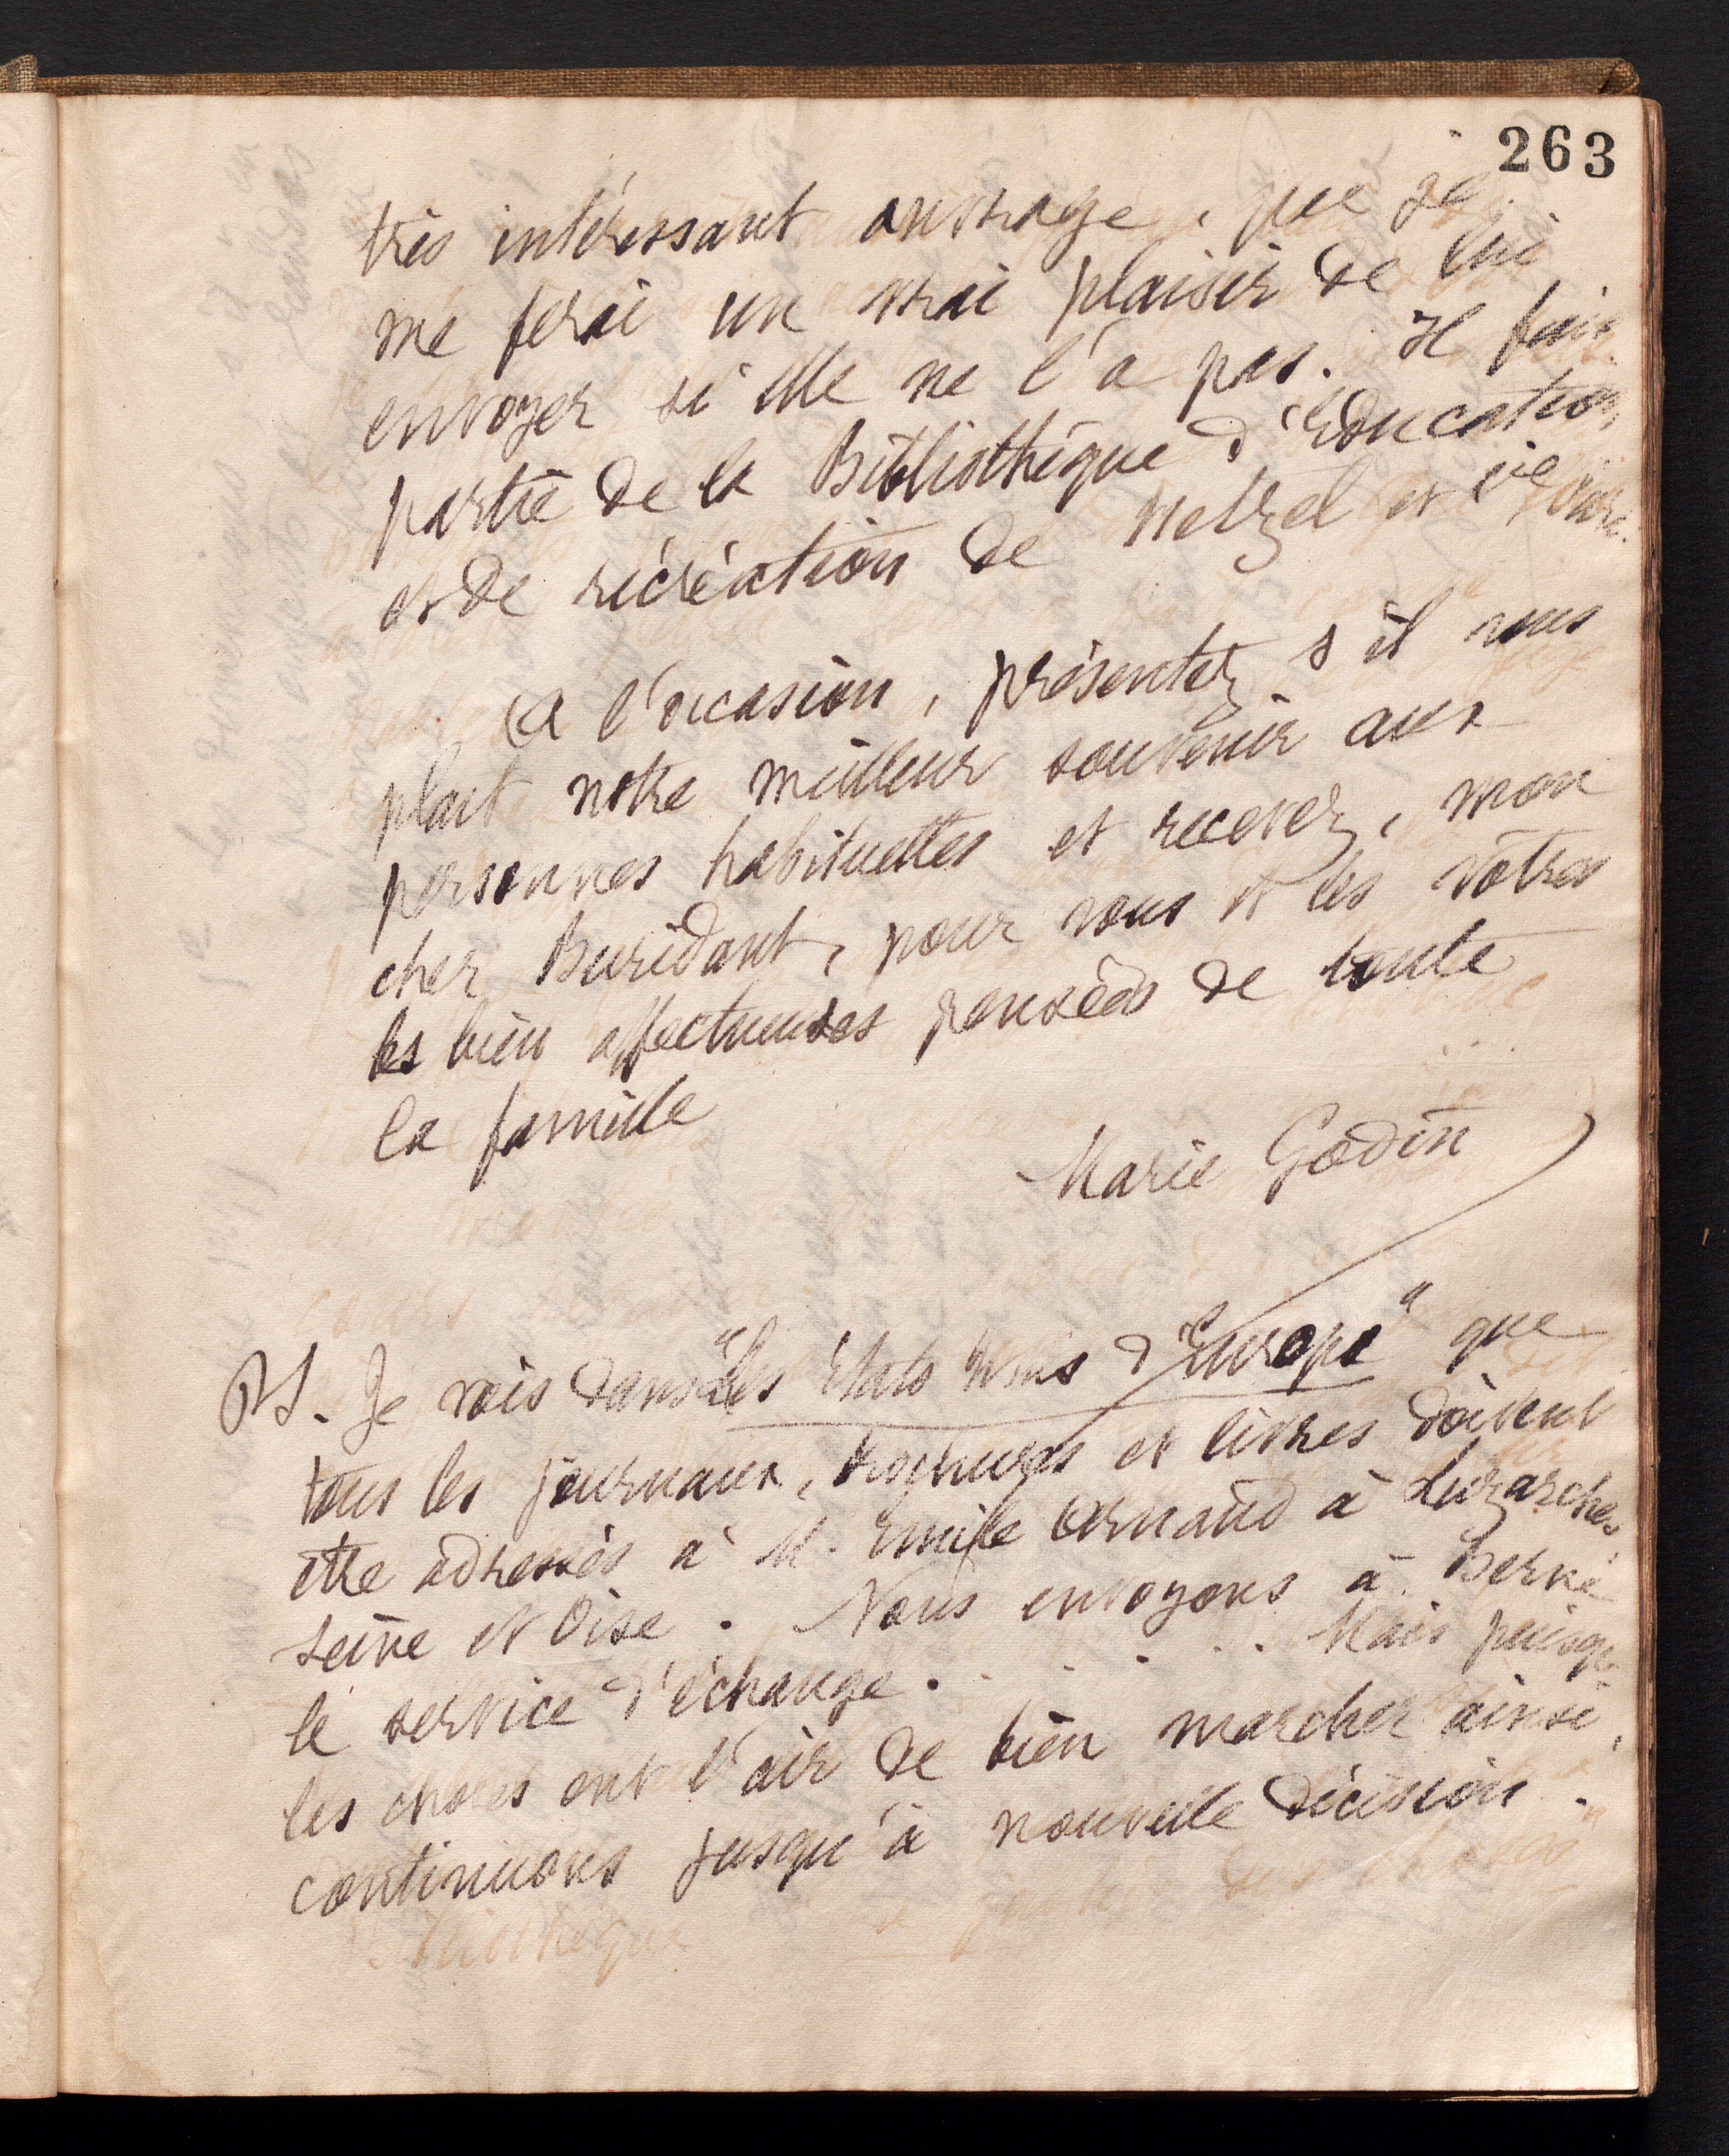 263
très intéressant ouvrage, que je
me ferai un vrai plaisir de lui
envoyer si elle ne l'a pas. Il fait
partie de la Bibliothèque d'Education
et de récréation de Hetzel et Cie
A l'occasion, présentez s'il vous
plait notre meilleur souvenir aux
personnes habituelles et recevez, mon
cher Buridant, pour vous et les vôtres
les bien affectueuses pensées de toute
la famille
Marie Godin
PS. Je vois dans "Les Etats Unis d'Europe" que
tous les journaux, brochures et livres doivent
être adressés à M. Emile Arnaud à Luzarches
Seine et Oise. Nous envoyons à Berne
le service d'échange. . . . . . Mais puisque
les choses ont l'air de bien marcher ainsi,
continuons jusqu'à nouvelle décision.